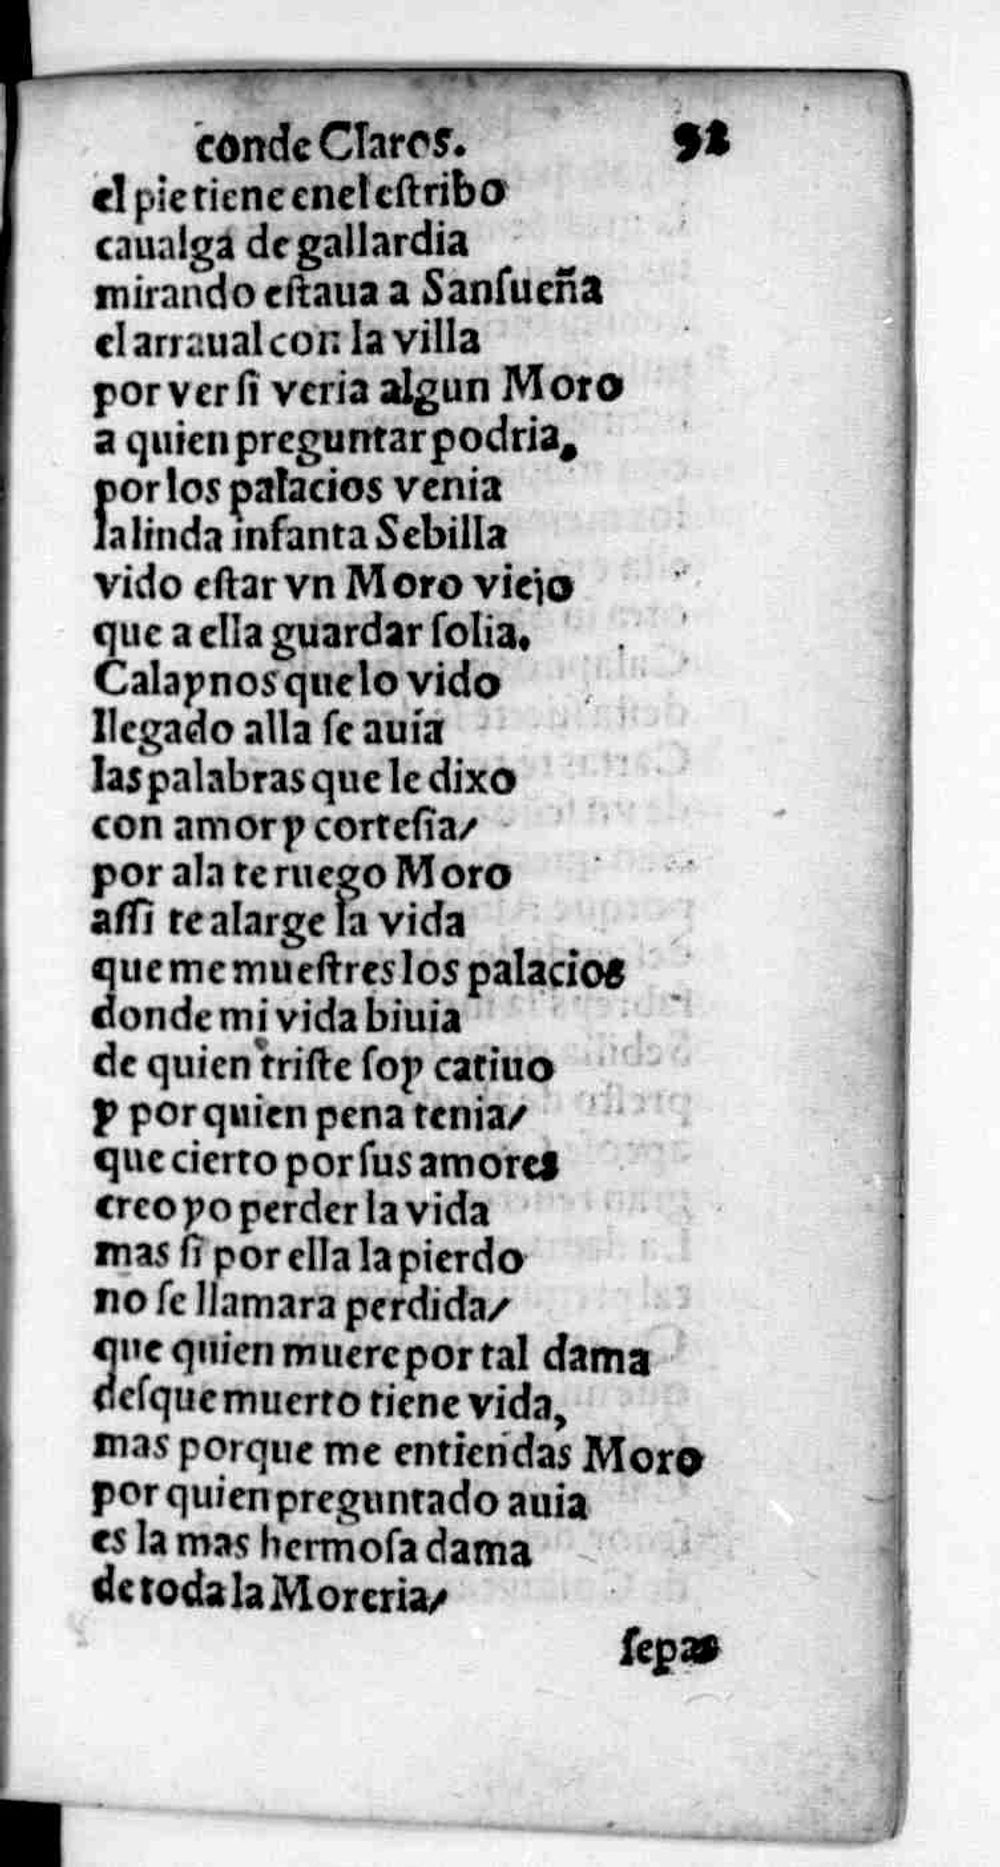 conde Claros. 92
el pie tiene enel eſtribo
caualga de gallardia
mirando eſtaua a Sanſueña
el arraual con la villa
por ver ſi veria algun Moro
a quien preguntar podria,
por los palacios venia
la linda infanta Sebilla
vido eſtar vn Moro viejo
que a ella guardar ſolia.
Calaynos que lo vido
llegado alla ſe auia
las palabras que le dixo
con amor y corteſia/
por ala te ruego Moro
aſſi te alarge la vida
que me mueſtres los palacios
donde mi vida biuia
de quien triſte ſoy catiuo
y por quien pena tenia/
que cierto por ſus amores
creo yo perder la vida
mas ſi por ella la pierdo
no ſe llamara perdida/
que quien muere por tal dama
deſque muerto tiene vida,
mas porque me entiendas Moro
por quien preguntado auia
es la mas hermoſa dama
de toda la Moreria/
ſepas